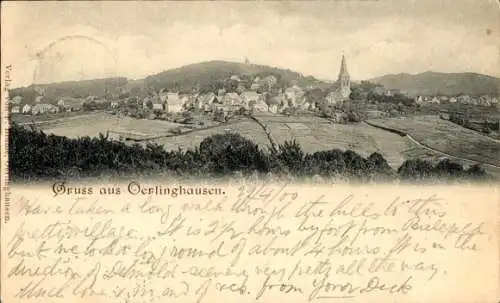 Gruss aus Oerlinghausen. 29/4/00
Have taken a long walk through the hills to this
pretty village. It is 2½ hours by from Bielefeld
but we took a long round of about 4 hours. It is in the
direction of Detmold - scenery very pretty all the way.
Much love to M. and of from Your Dick
Verlag von Oerlinghausen.